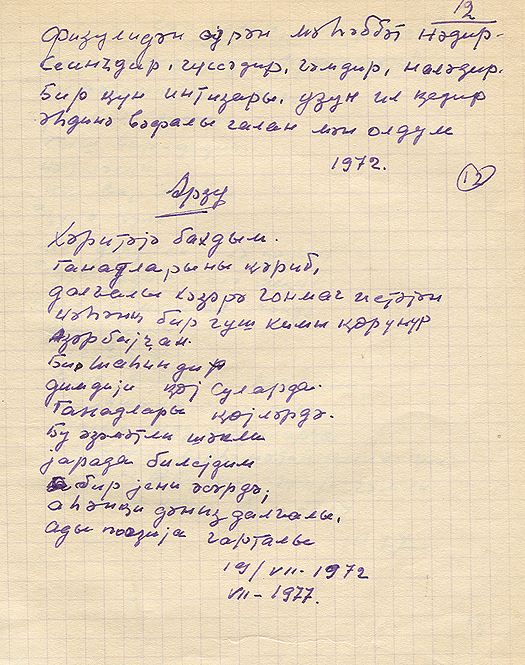 12
Физулидән сүрән мәһәббәт нәдир-
Севинҹдир, гүссәдир, гәмдир, наләдир.
Бир ҝүн интизары, узун ил ҝедир
әһдинә вәфалы галан мән олдум
1972.
12
Арзу
Хәритәјә бахдым.
Ганадларыны ҝәриб,
далғалы Хәзәрә гонмаг истәјән
нәһәнҝ бир гуш кими ҝөрүнүр
Азәрбајҹан.
Бир шаһиндир
димдији ҝөј суларда.
Ганадлары ҝөјләрдә.
Бу әзәмәтли шәкли
јарада билсјдим
бир јени әсәрдә;
аһәнҝи дәниз далғалы,
ады поезија гарталы
19/VII-1972
VII-1977.